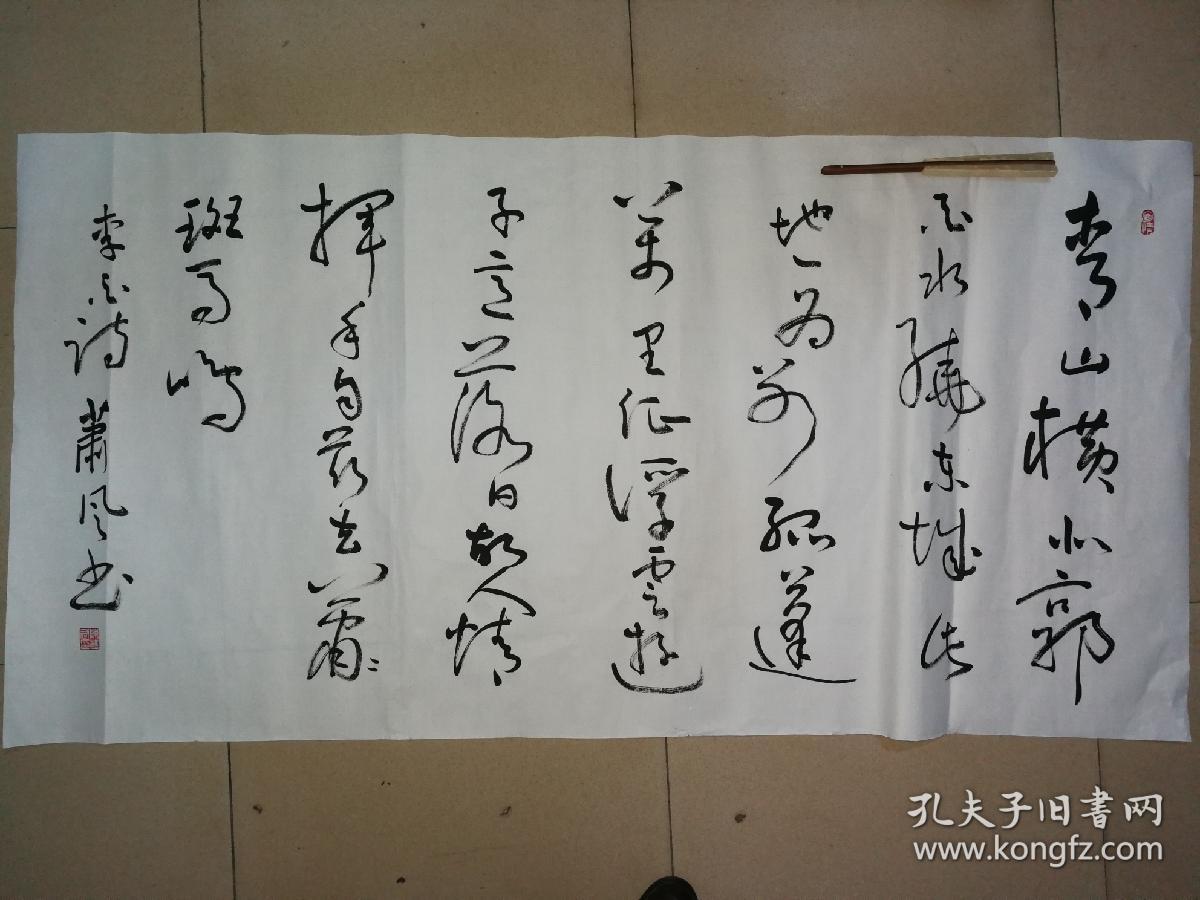 青山横北郭
白水繞东城此
地一为别孤蓬
萬里征浮雲遊
子意落日故人情
揮手自茲去蕭〻
班馬鳴
李白詩 蕭风书
孔夫子旧书网
www.kongfz.com